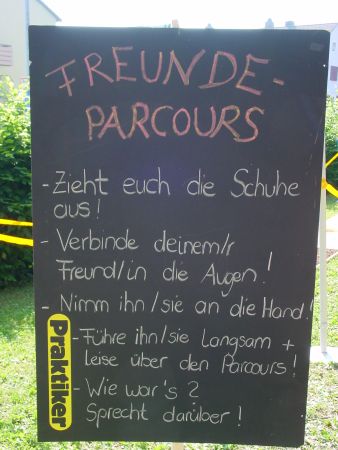 FREUNDE-
PARCOURS
- Zieht euch die Schuhe
aus!
- Verbinde deinem/r
Freund/in die Augen!
- Nimm ihn/sie an die Hand!
- Führe ihn/sie langsam +
leise über den Parcours!
- Wie war's?
Sprecht darüber!
Praktiker